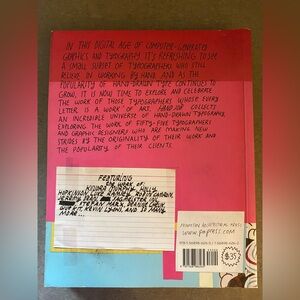 IN THIS DIGITAL AGE OF COMPUTER-GENERATED
GRAPHICS AND TYPOGRAPHY IT'S REFRESHING TO SEE
A SMALL SUBSET OF TYPOGRAPHERS WHO STILL
BELIEVE IN WORKING BY HAND. AND AS THE
POPULARITY OF HAND-DRAWN TYPE CONTINUES TO
GROW, IT IS NOW TIME TO EXPLORE AND CELEBRATE
THE WORK OF THOSE TYPOGRAPHERS WHOSE EVERY
LETTER IS A WORK OF ART. HAND JOB COLLECTS
AN INCREDIBLE UNIVERSE OF HAND-DRAWN TYPOGRAPHY,
EXPLORING THE WORK OF FIFTY-FIVE TYPOGRAPHERS
AND GRAPHIC DESIGNERS WHO ARE MAKING NEW
STRIDES BY THE ORIGINALITY OF THEIR WORK AND
THE POPULARITY OF THEIR CLIENTS.
FEATURING
THE WORK OF
HOPKINSON
KEVIN LYONS, AND SO MANY
MORE...
PRINCETON ARCHITECTURAL PRESS
WWW.PAPRESS.COM
$35